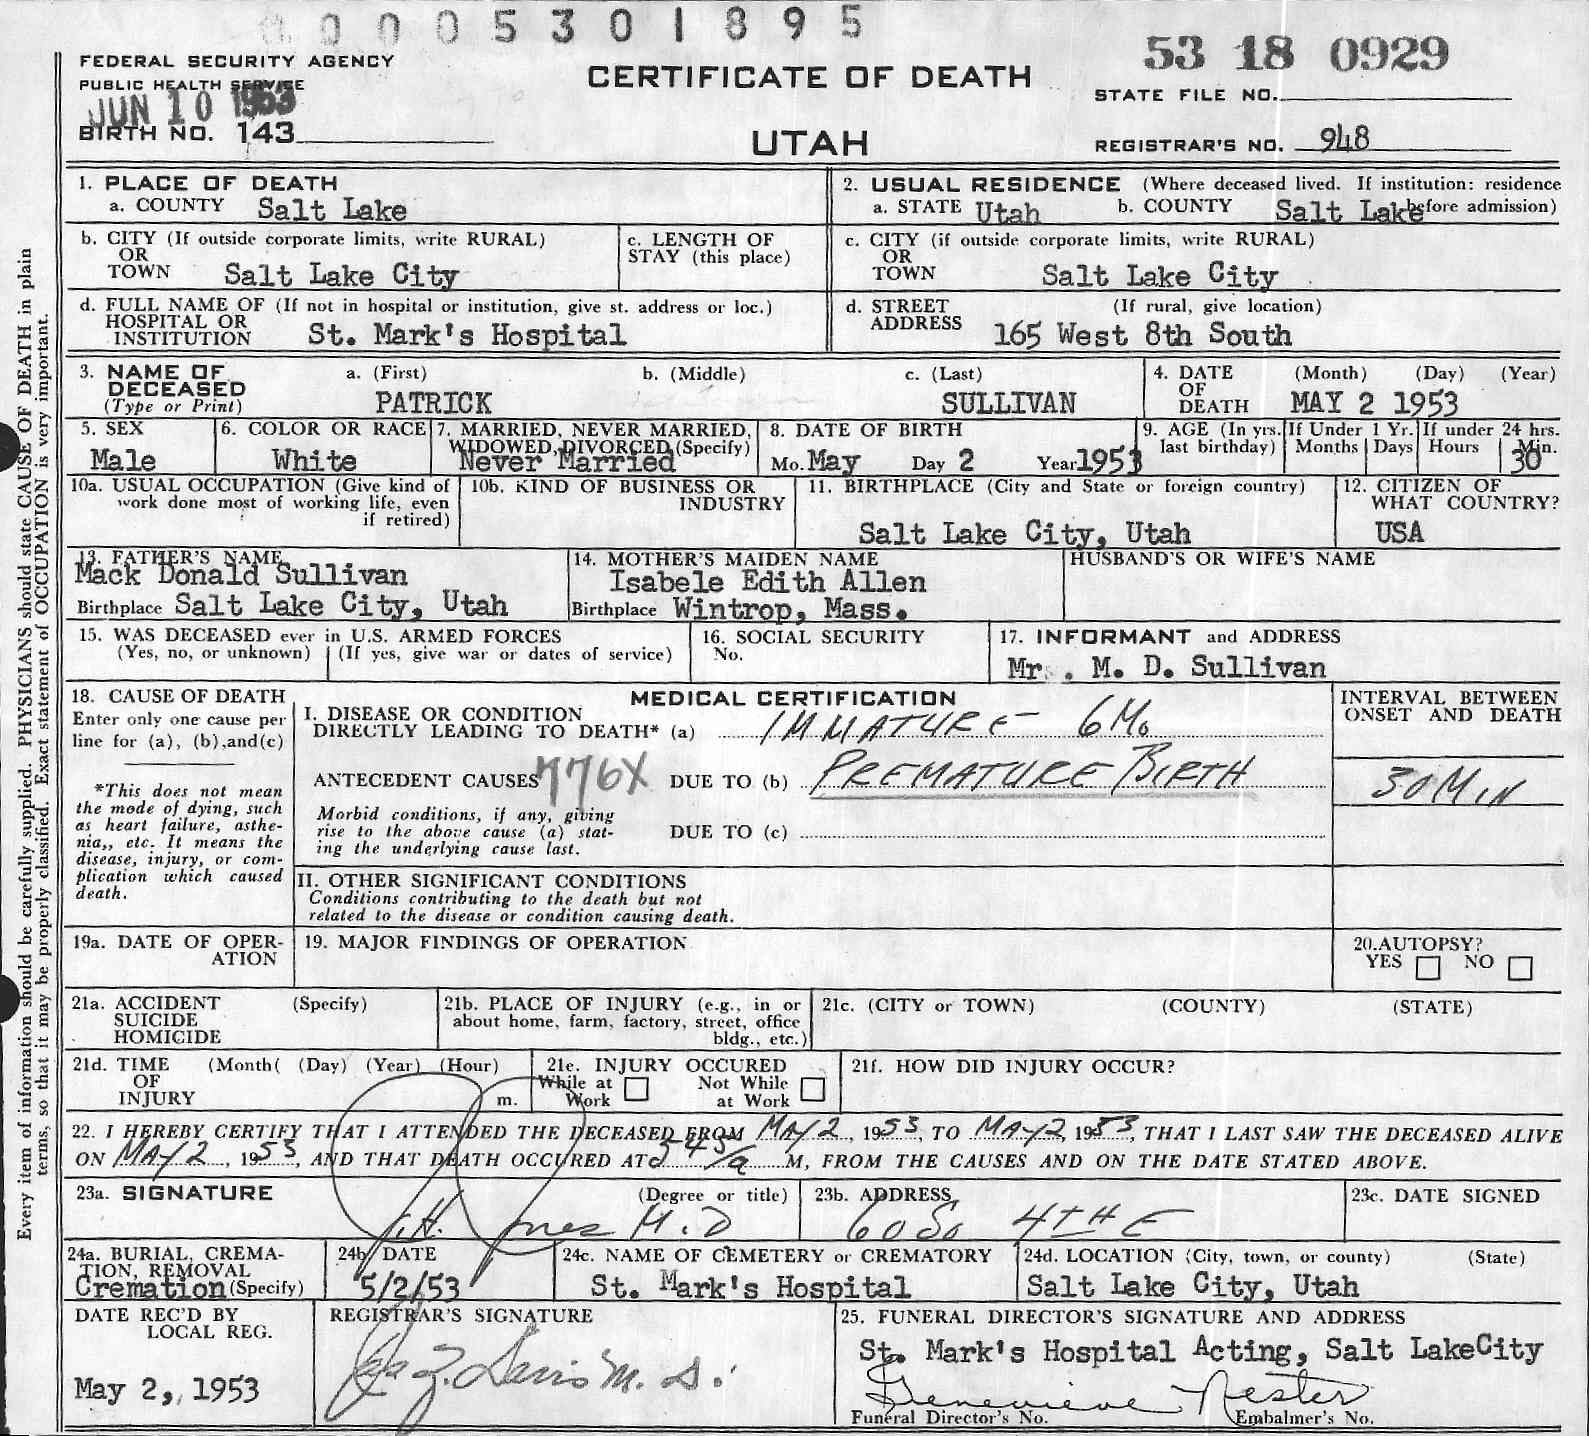 0005301895
FEDERAL SECURITY AGENCY
PUBLIC HEALTH SERVICE
JUN 10 1953
BIRTH NO. 143
CERTIFICATE OF DEATH
UTAH
53 18 0929
STATE FILE NO.
REGISTRAR'S NO. 948
1. PLACE OF DEATH
a. COUNTY Salt Lake
2. USUAL RESIDENCE (Where deceased lived. If institution: residence before admission)
a. STATE Utah b. COUNTY Salt Lake
b. CITY (If outside corporate limits, write RURAL)
OR
TOWN Salt Lake City
c. LENGTH OF
STAY (this place)
c. CITY (if outside corporate limits, write RURAL)
OR
TOWN Salt Lake City
d. FULL NAME OF (If not in hospital or institution, give st. address or loc.)
HOSPITAL OR
INSTITUTION St. Mark's Hospital
d. STREET (If rural, give location)
ADDRESS 165 West 8th South
3. NAME OF
DECEASED
(Type or Print)
a. (First) b. (Middle) c. (Last)
PATRICK SULLIVAN
4. DATE (Month) (Day) (Year)
OF
DEATH MAY 2 1953
5. SEX
Male
6. COLOR OR RACE
White
7. MARRIED, NEVER MARRIED,
WIDOWED, DIVORCED (Specify)
Never Married
8. DATE OF BIRTH
Mo. May Day 2 Year 1953
9. AGE (In yrs. last birthday)
If Under 1 Yr. Months Days
If under 24 hrs. Hours Min.
30
10a. USUAL OCCUPATION (Give kind of
work done most of working life, even
if retired)
10b. KIND OF BUSINESS OR
INDUSTRY
11. BIRTHPLACE (City and State or foreign country)
Salt Lake City, Utah
12. CITIZEN OF
WHAT COUNTRY?
USA
13. FATHER'S NAME
Mack Donald Sullivan
Birthplace Salt Lake City, Utah
14. MOTHER'S MAIDEN NAME
Isabele Edith Allen
Birthplace Wintrop, Mass.
HUSBAND'S OR WIFE'S NAME
15. WAS DECEASED ever in U.S. ARMED FORCES
(Yes, no, or unknown) (If yes, give war or dates of service)
16. SOCIAL SECURITY
No.
17. INFORMANT and ADDRESS
Mr . M. D. Sullivan
18. CAUSE OF DEATH
Enter only one cause per
line for (a), (b), and (c)
*This does not mean
the mode of dying, such
as heart failure, asthe-
nia,, etc. It means the
disease, injury, or com-
plication which caused
death.
MEDICAL CERTIFICATION
I. DISEASE OR CONDITION
DIRECTLY LEADING TO DEATH* (a) IMMATURE 6 Mo
ANTECEDENT CAUSES 776X DUE TO (b) PREMATURE BIRTH
Morbid conditions, if any, giving
rise to the above cause (a) stat-
ing the underlying cause last.
DUE TO (c)
INTERVAL BETWEEN
ONSET AND DEATH
30 MIN
II. OTHER SIGNIFICANT CONDITIONS
Conditions contributing to the death but not
related to the disease or condition causing death.
19a. DATE OF OPER-
ATION
19. MAJOR FINDINGS OF OPERATION
20. AUTOPSY?
YES NO
21a. ACCIDENT (Specify)
SUICIDE
HOMICIDE
21b. PLACE OF INJURY (e.g., in or
about home, farm, factory, street, office
bldg., etc.)
21c. (CITY or TOWN) (COUNTY) (STATE)
21d. TIME (Month( (Day) (Year) (Hour)
OF
INJURY m.
21e. INJURY OCCURED
While at Work Not While at Work
21f. HOW DID INJURY OCCUR?
22. I HEREBY CERTIFY THAT I ATTENDED THE DECEASED FROM MAY 2, 1953, TO MAY 2, 1953, THAT I LAST SAW THE DECEASED ALIVE
ON MAY 2, 1953, AND THAT DEATH OCCURED AT 545/a M, FROM THE CAUSES AND ON THE DATE STATED ABOVE.
23a. SIGNATURE (Degree or title)
Jones M.D
23b. ADDRESS
60 So 4TH E
23c. DATE SIGNED
24a. BURIAL, CREMA-
TION, REMOVAL
Cremation (Specify)
24b. DATE
5/2/53
24c. NAME OF CEMETERY or CREMATORY
St. Mark's Hospital
24d. LOCATION (City, town, or county) (State)
Salt Lake City, Utah
DATE REC'D BY
LOCAL REG.
May 2, 1953
REGISTRAR'S SIGNATURE
M. D.
25. FUNERAL DIRECTOR'S SIGNATURE AND ADDRESS
St. Mark's Hospital Acting, Salt LakeCity
Genevieve Nester
Funeral Director's No. Embalmer's No.
Every item of information should be carefully supplied. PHYSICIANS should state CAUSE OF DEATH in plain
terms, so that it may be properly classified. Exact statement of OCCUPATION is very important.